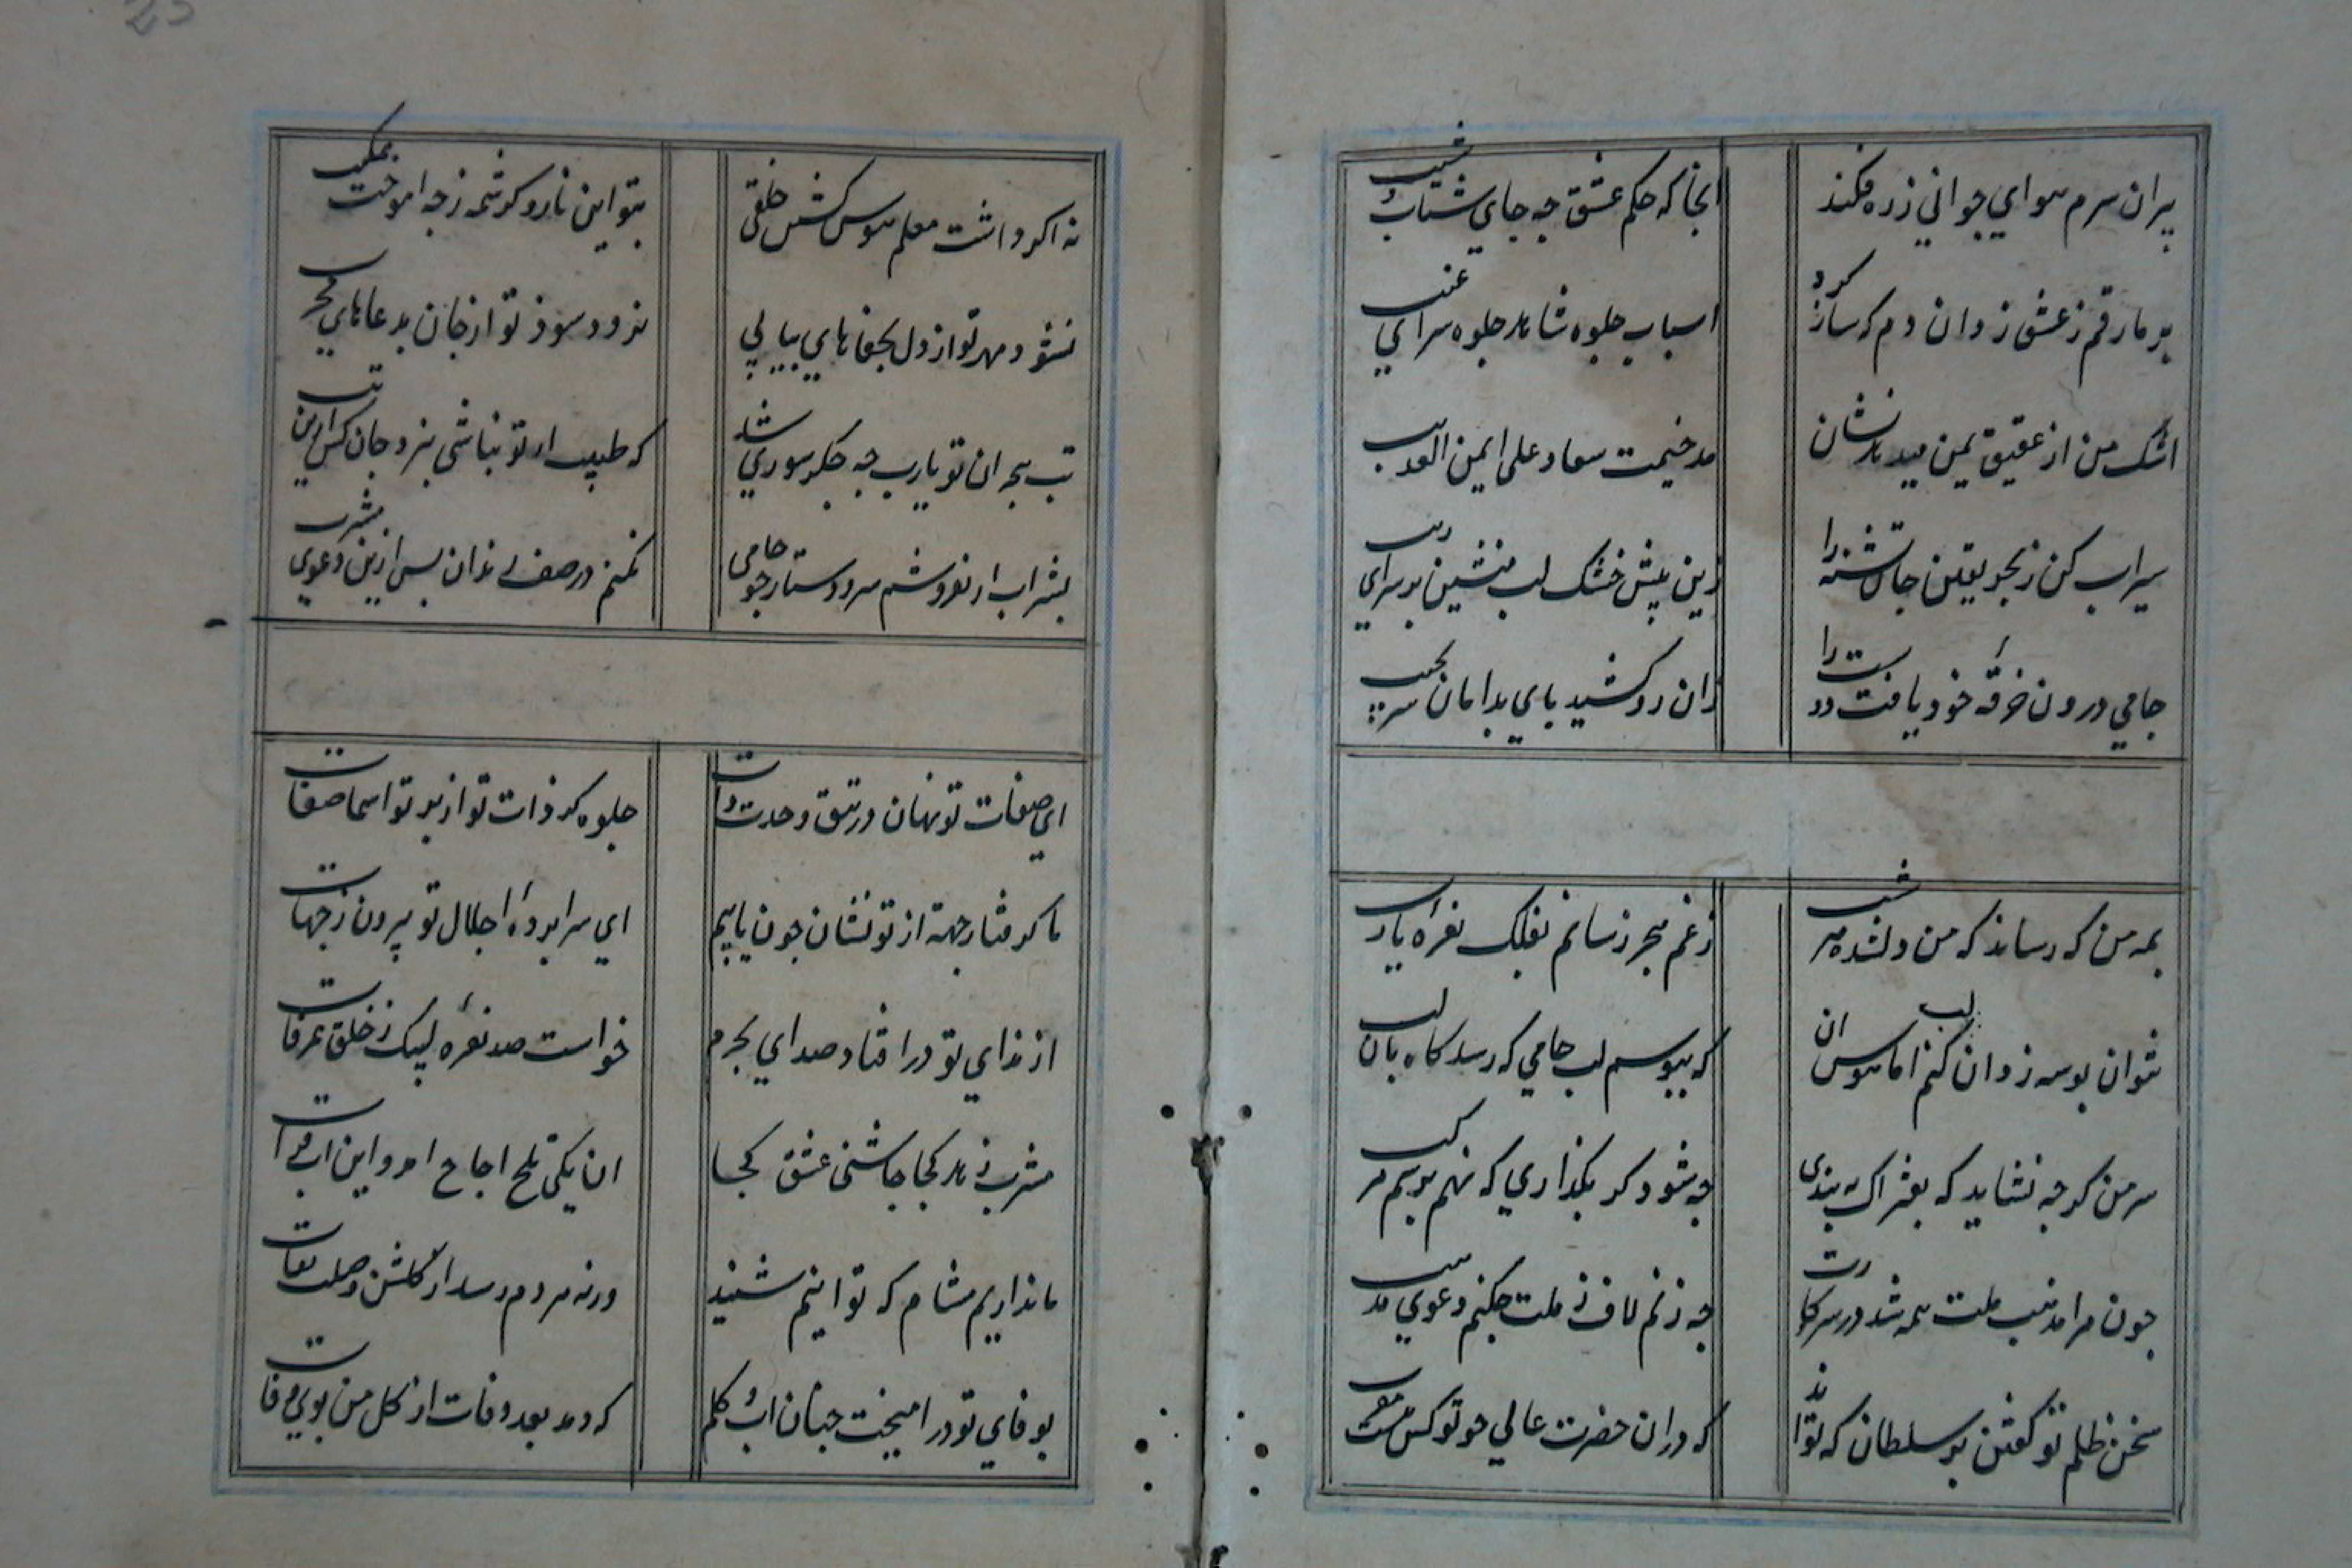 پیران سرم هوای جوانی ز ره فکند
انجا که حکم عشق چه جای شتاب و شیب
بر ما رقم ز عشق زدان دم که ساز کرد
اسباب جلوه شاهد جلوه سرای غیب
اشک من از عقیق یمن میدهد نشان
مذ خیمت سعاد علی ایمن العذیب
سیراب کن ز بحر یقین جان تشنه را
زین پیش خشک لب منشین بر سرای ریب
جامی درون خرقه خود یافت دوست را
زان رو کشید پای بدامان سر بجیب
بمه من که رساند که من دلشده هر شب
ز غم هجر رسانم بفلک نعره یارب
نتوان بوسه زدان کنم اما هوس ان
که ببوسم لب جامی که رسد گاه بان لب
سر من گرچه نشاید که بفتراک ببندی
چه شود گر بگذاری که نهم بر سم مرکب
چون مرا مذهب ملت همه شد در سر کارت
چه زنم لاف ز ملت چکنم دعوی مذهب
سخن ظلم تو گفتن بر سلطان که تواند
که دران حضرت عالی چو تو کس نیست مقرب
نه اکر داشت معلم هوس کشتن خلقی
بتو این ناز و کرشمه ز چه اموخت بمکتب
نشود مهر تو از دل بجفاهای پیاپی
نرود سوز تو از جان بدعاهای مجرب
تب هجران تو یارب چه جگر سوزی شد
که طبیب ار تو نباشی نبرد جان کس ازین تب
بشراب ار نفروشم سر و دستار چو جامی
نکنم در صف رندان پس ازین دعوی مشرب
ای صفات تو نهان در تتق وحدت ذات
جلوه گر ذات تو از پرتو اسما صفات
ما گرفتار جهة از تو نشان چون یابیم
ای سرا پرده اجلال تو بیرون ز جهات
از ندای تو در افتاد صدای بحرم
خواست صد نعره لبیک ز خلق عرفات
مشرب زهد کجا چاشنی عشق کجا
ان یکی تلح اجاح امد و این اب فرات
ما نداریم مشام که توانیم شنید
ورنه هر دم رسد از گلشن وصلت نفحات
بوفای تو در امیخت چنان اب و گلم
که دمد بعد وفات از گل من بوی وفا